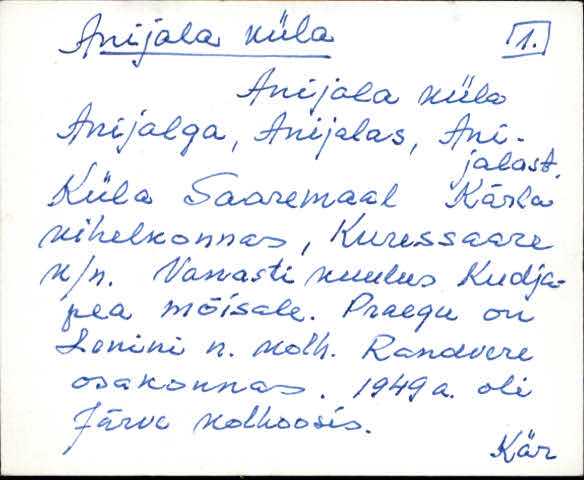 Anijala küla
1.
Anijala küla
Anijalga, Anijalas, Ani-
jalast.
Küla Saaremaal Kärla
kihelkonnas, Kuressaare
k/n. Vanasti kuulus Kudja-
pea mõisale. Praegu on
Lenini n. kolh. Randvere
osakonnas. 1949a. oli
Järve kolhoosis.
Kär